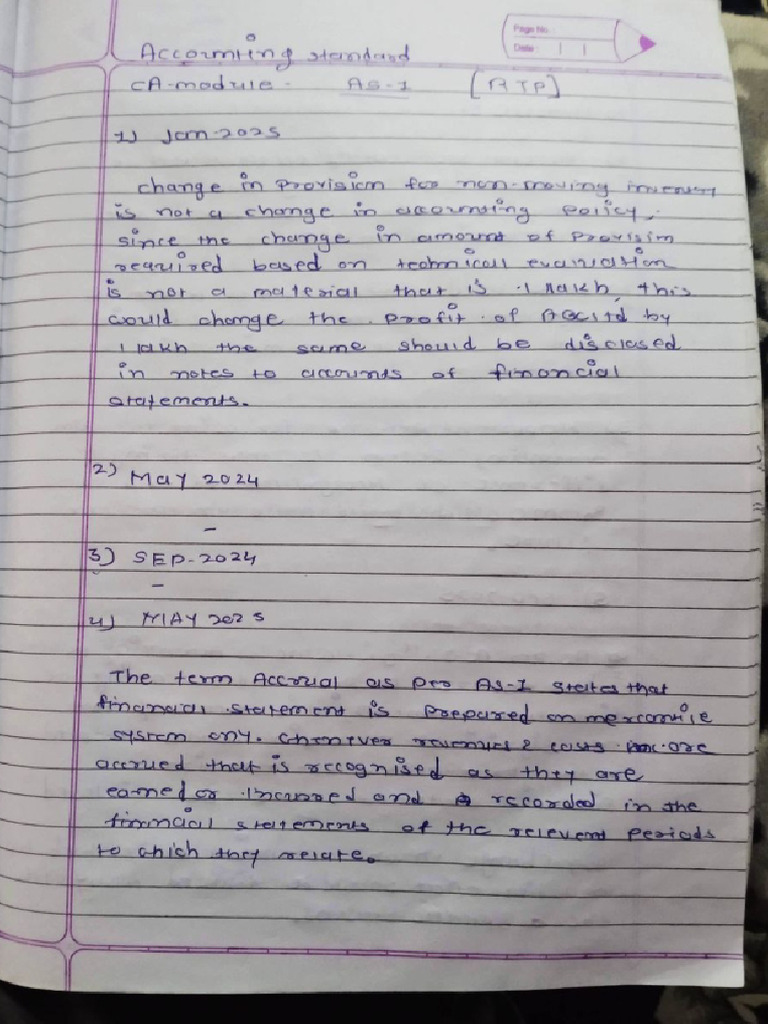 Page No.
Date:
Accounting standard
CA-module- AS-1 [RTP]
1) Jan-2025
change in provision for non-moving
is not a change in accounting policy.
since the change in amount of provision
required based on technical evaluation
is not a material that is 1 lakh, this
could change the profit of by
1 lakh the same should be disclosed
in notes to accounts of financial
statements.
2) May 2024
-
3) SEP-2024
-
4) MAY 2025
The term Accrual as per AS-1 states that
financial statement is prepared on mercantile
system only. revenues & costs are
accrued that is recognised as they are
earned or incurred and recorded in the
financial statements of the relevent periods
to which they relate.